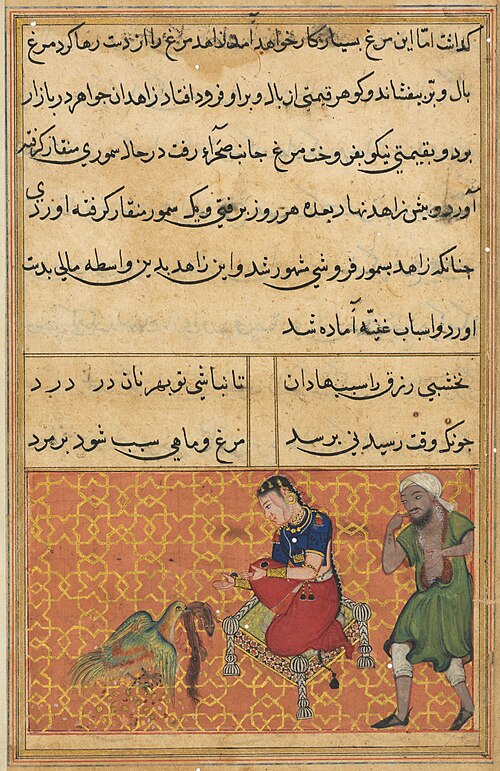 کذاشت اما این مرغ بسیار کار خواهد آمد زاهد مرغ را از دست رها کرد مرغ
بال و پر بیفشاند و کوهر قیمتی از بال و پر او فرود افتاد زاهد ان جواهر در بازار
برد و بقیمتی نیکو بفروخت مرغ جانب صحرا رفت در حال سموری منقار کرفته
آورد و پیش زاهد نهاد بعده هر روز برفتی و یک سمور منقار کرفته اوردی
چنانکه زاهد بسمور فروشی مشهور شد و این زاهد بدین واسطه مالی بدست
اورد و اسباب آماده شد
نخشبی رزق را سبب هادان
تا نباشی تو بهر نان در درد
چونکه وقت رسیدنی برسد
مرغ و ماهی سبب شود بر مرد